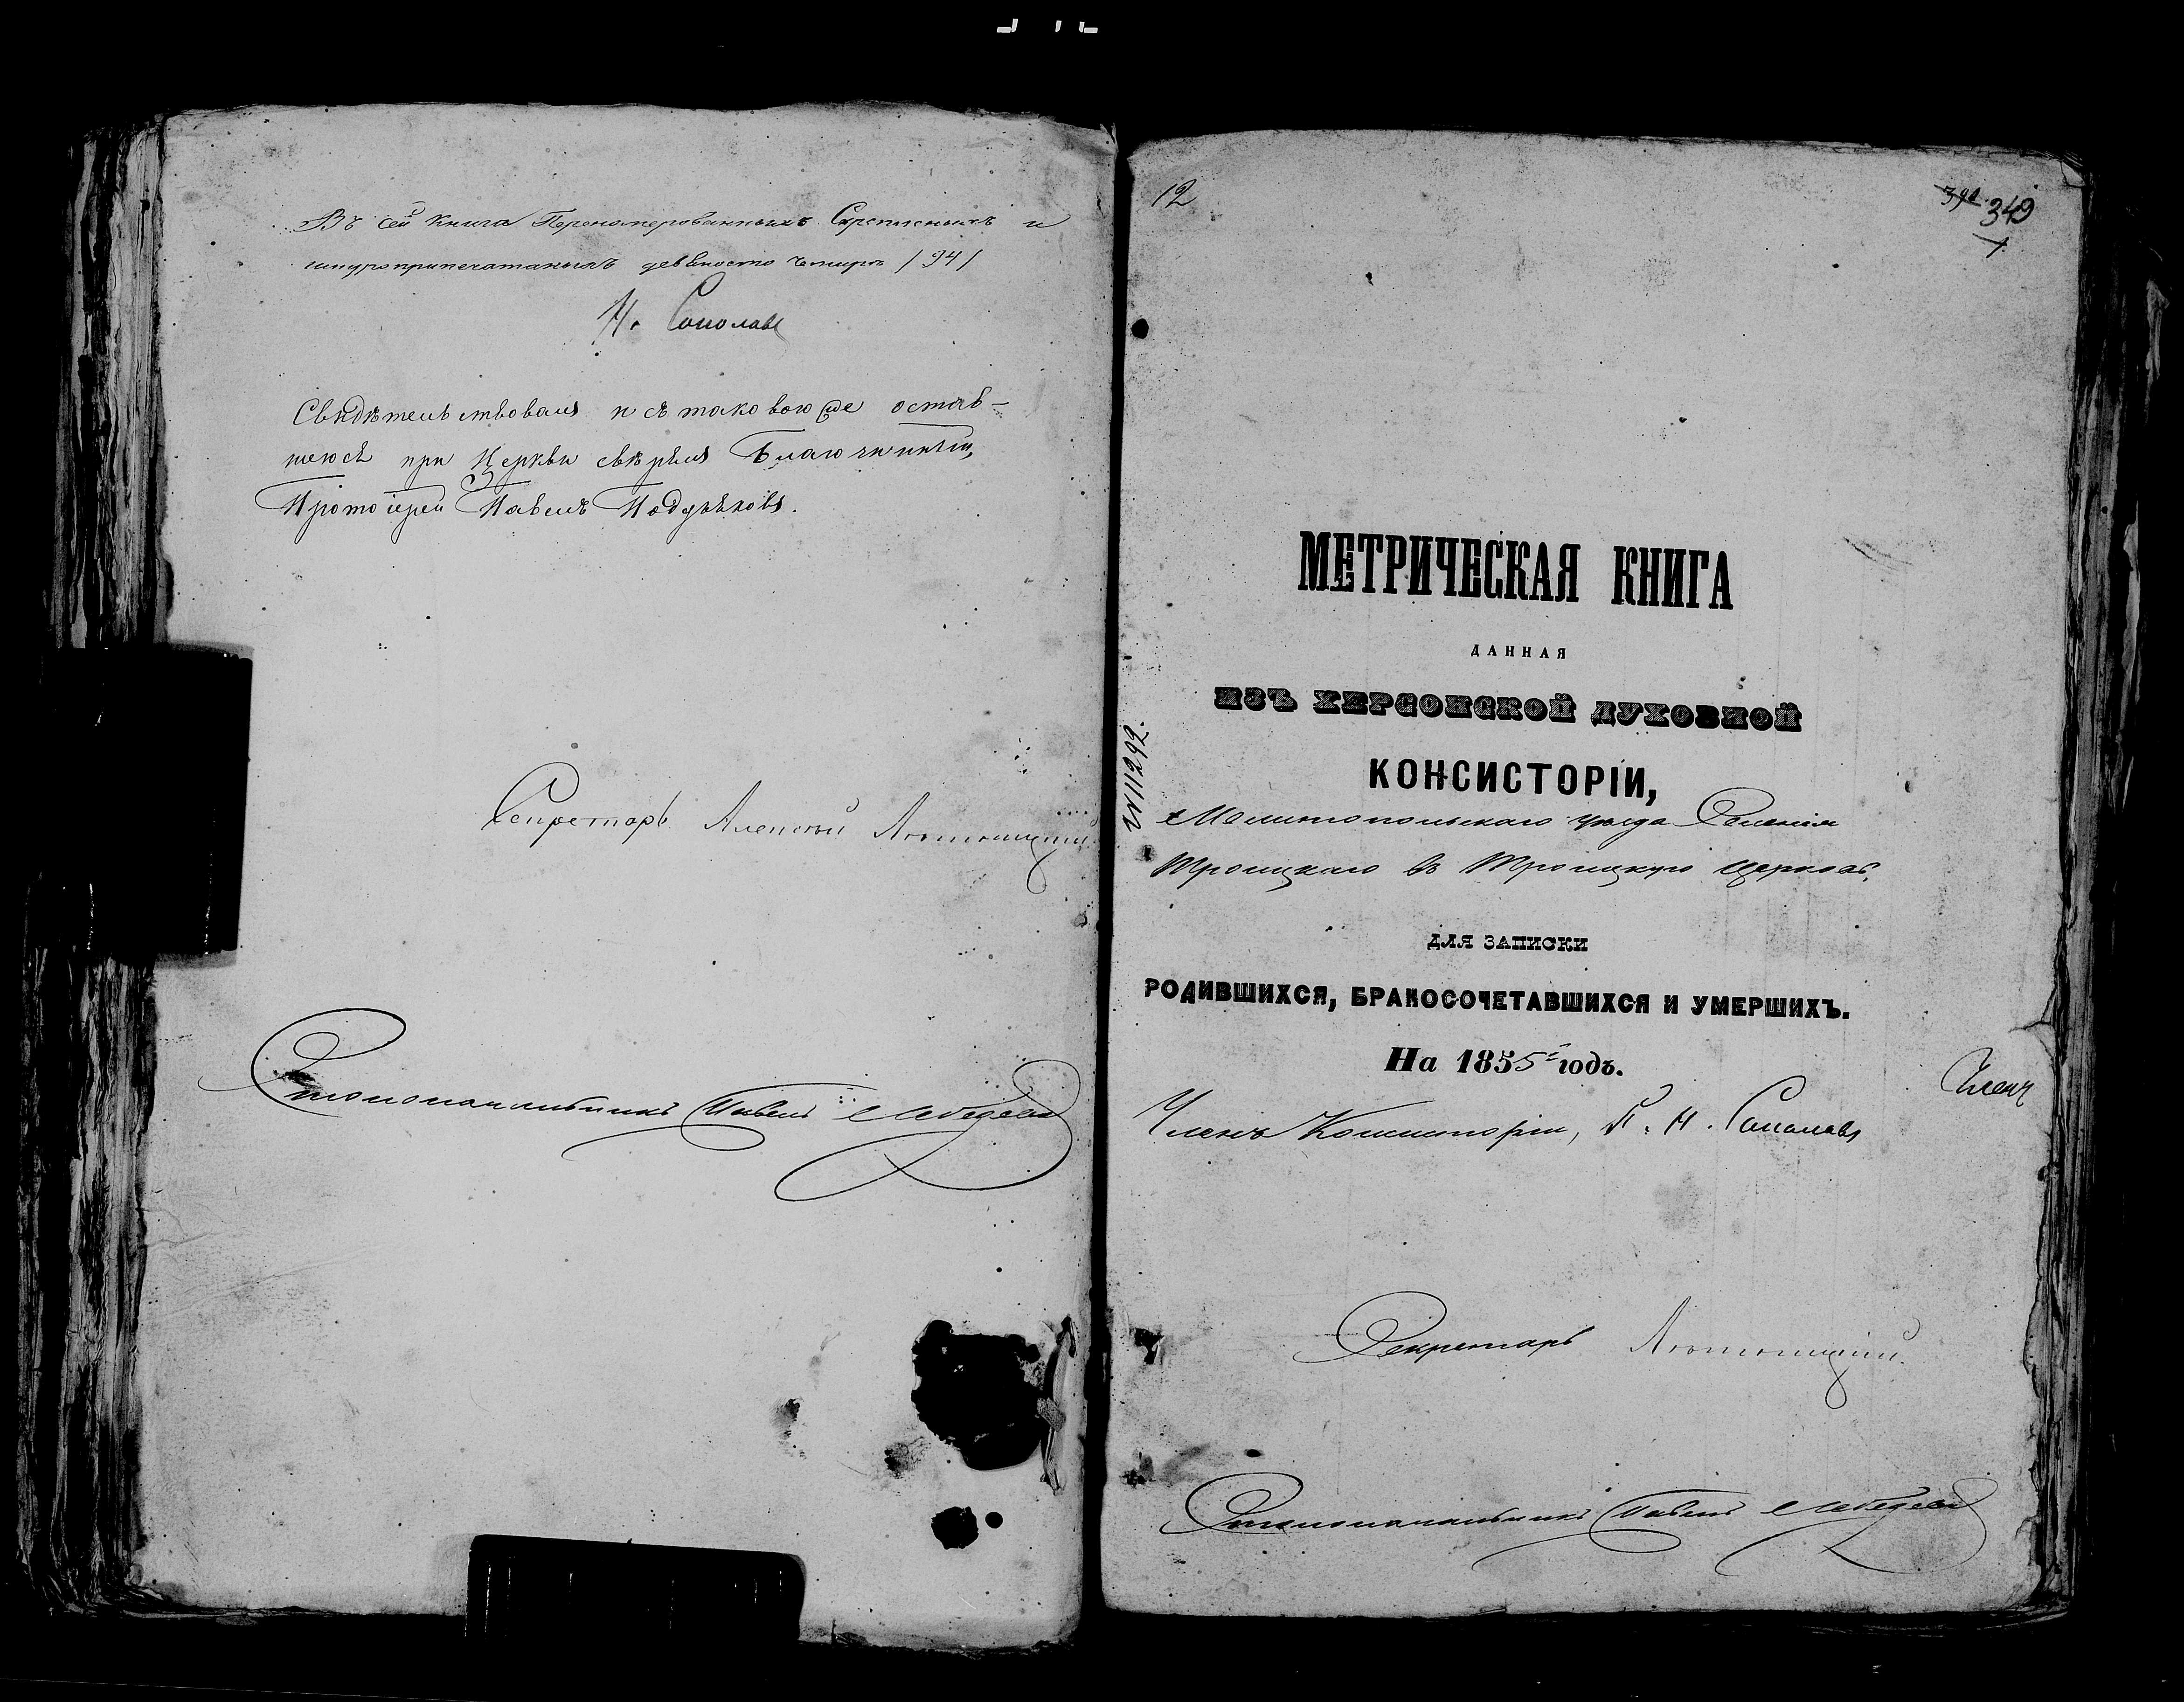 Въ сей Книга Переномерованныхъ Скрепленыхъ и
шнуроприпечатаныхъ девяносто четыре / 94 /
Н. Соколовъ
Свидѣтельствовалъ и съ таковою же остав-
шеюсѣ при Церкви свѣрялъ Благочинный,
Протоіерей Павелъ
Секретарь Алексѣй
Столоначальникъ Павелъ Лебедевъ
12
349
№ 11292.
МЕТРИЧЕСКАЯ КНИГА
ДАННАЯ
ИЗЪ ХЕРСОНСКОЙ ДУХОВНОЙ
КОНСИСТОРІИ,
Мелитопольскаго уѣзда Селенія
Троицкаго въ Троицкую церковь,
ДЛЯ ЗАПИСКИ
РОДИВШИХСЯ, БРАКОСОЧЕТАВШИХСЯ И УМЕРШИХЪ.
На 1855 годъ.
Членъ
Членъ Консисторіи, П. Н. Соколовъ
Секретарь
Столоначальникъ Павелъ Лебедевъ